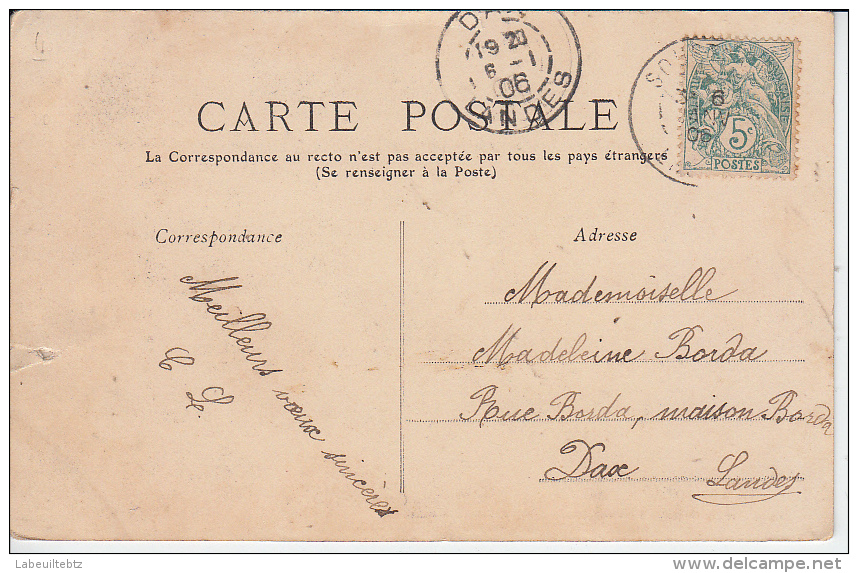 CARTE POSTALE
La Correspondance au recto n'est pas acceptée par tous les pays étrangers
(Se renseigner à la Poste)
DAX
19 20
6 -1
06
LANDES
6
5c
POSTES
Correspondance
Meilleurs vœux sincères
C L.
Adresse
Mademoiselle
Madeleine Borda
Rue Borda, maison Borda
Dax Landes
Labeuiltebtz
www.delcampe.net